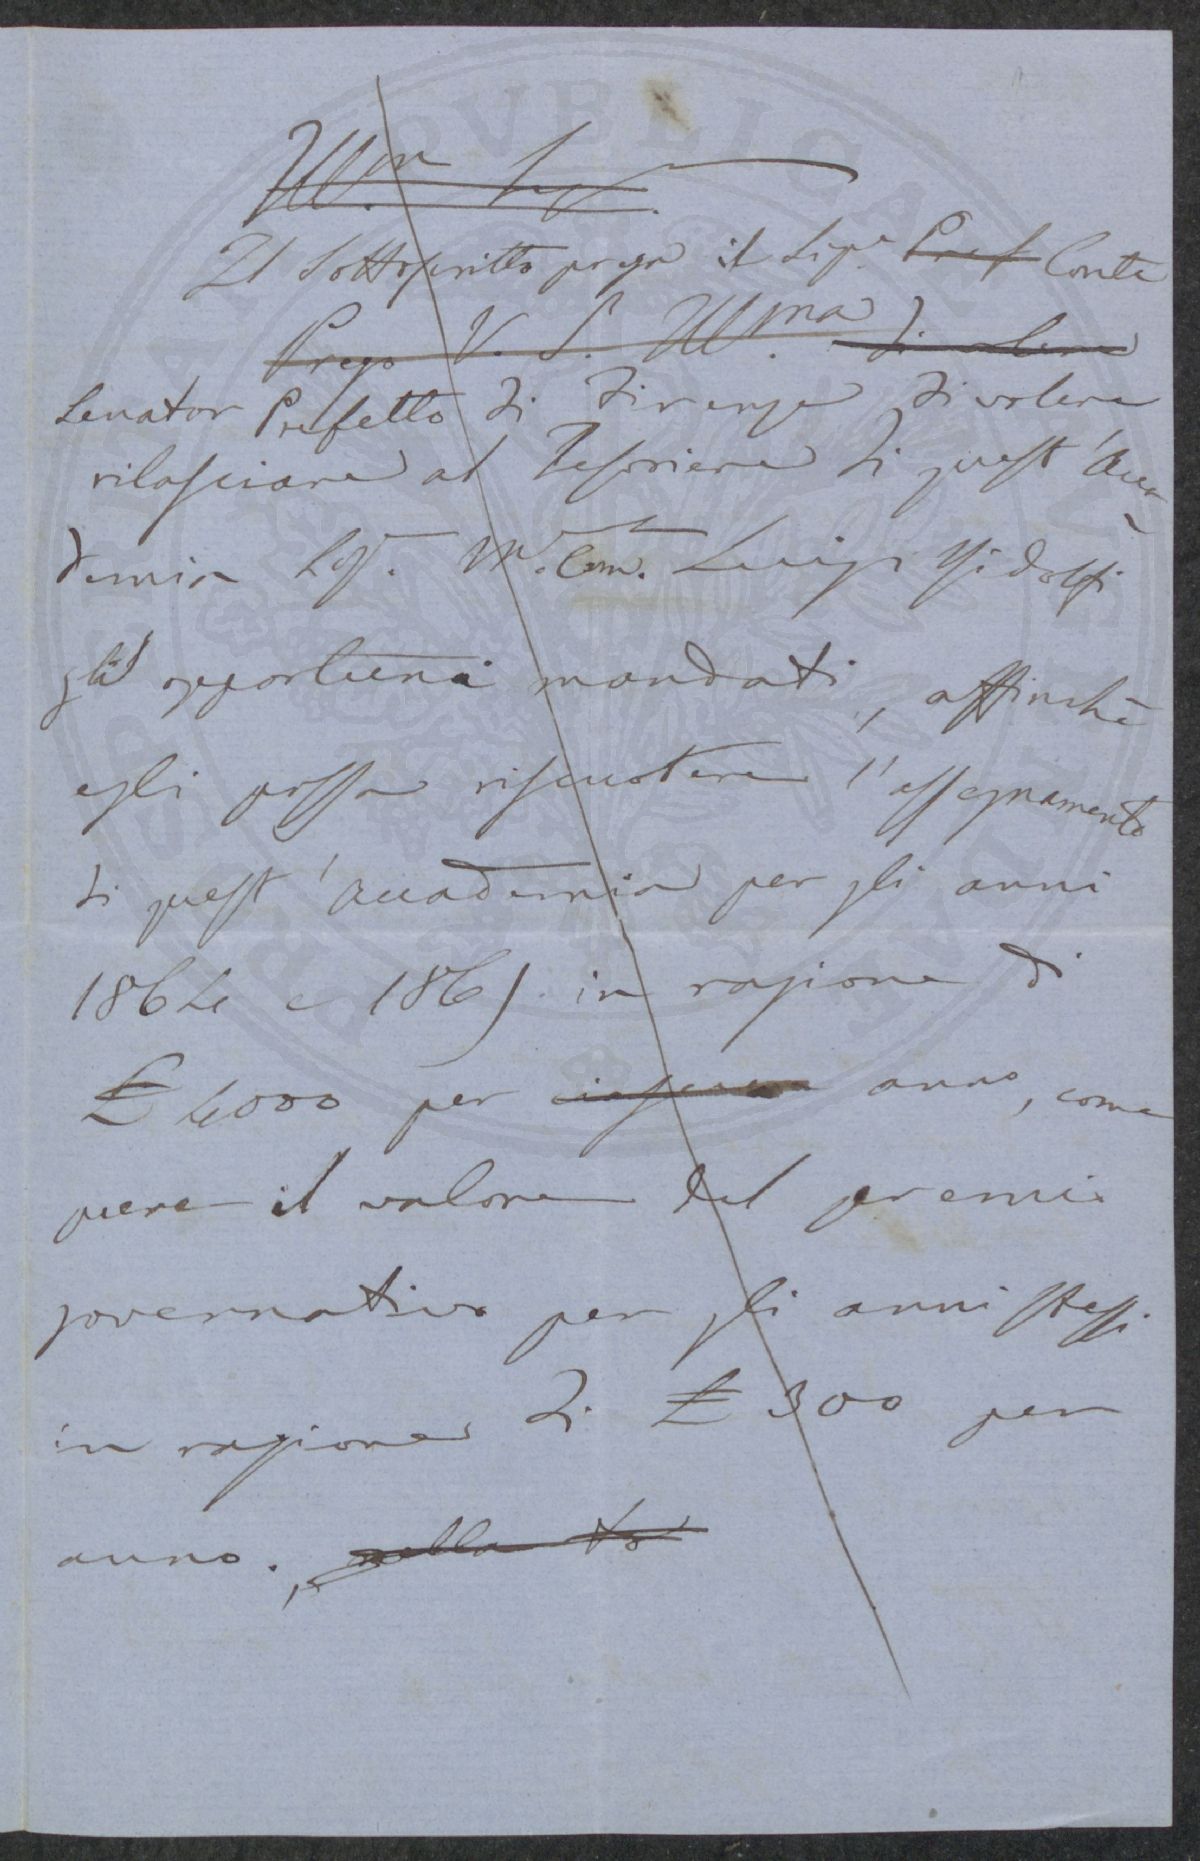 Ill.mo Sig.
Il Sottoscritto prega il Sig.r Pref Conte
Prego V. S. Ill.ma di volere
Senator Prefetto di Firenze di volere
rilasciare al Tesoriere di quest'Acca-
demia Sig. M. Com. Luigi Ridolfi
gli opportuni mandati, affinchè
egli possa riscuotere l'assegnamento
di quest'Accademia per gli anni
1864 e 1865 in ragione di
£ 4000 per ciascuno anno, come
pure il valore del premio
governativo per gli anni stessi
in ragione di £ 300 per
anno.